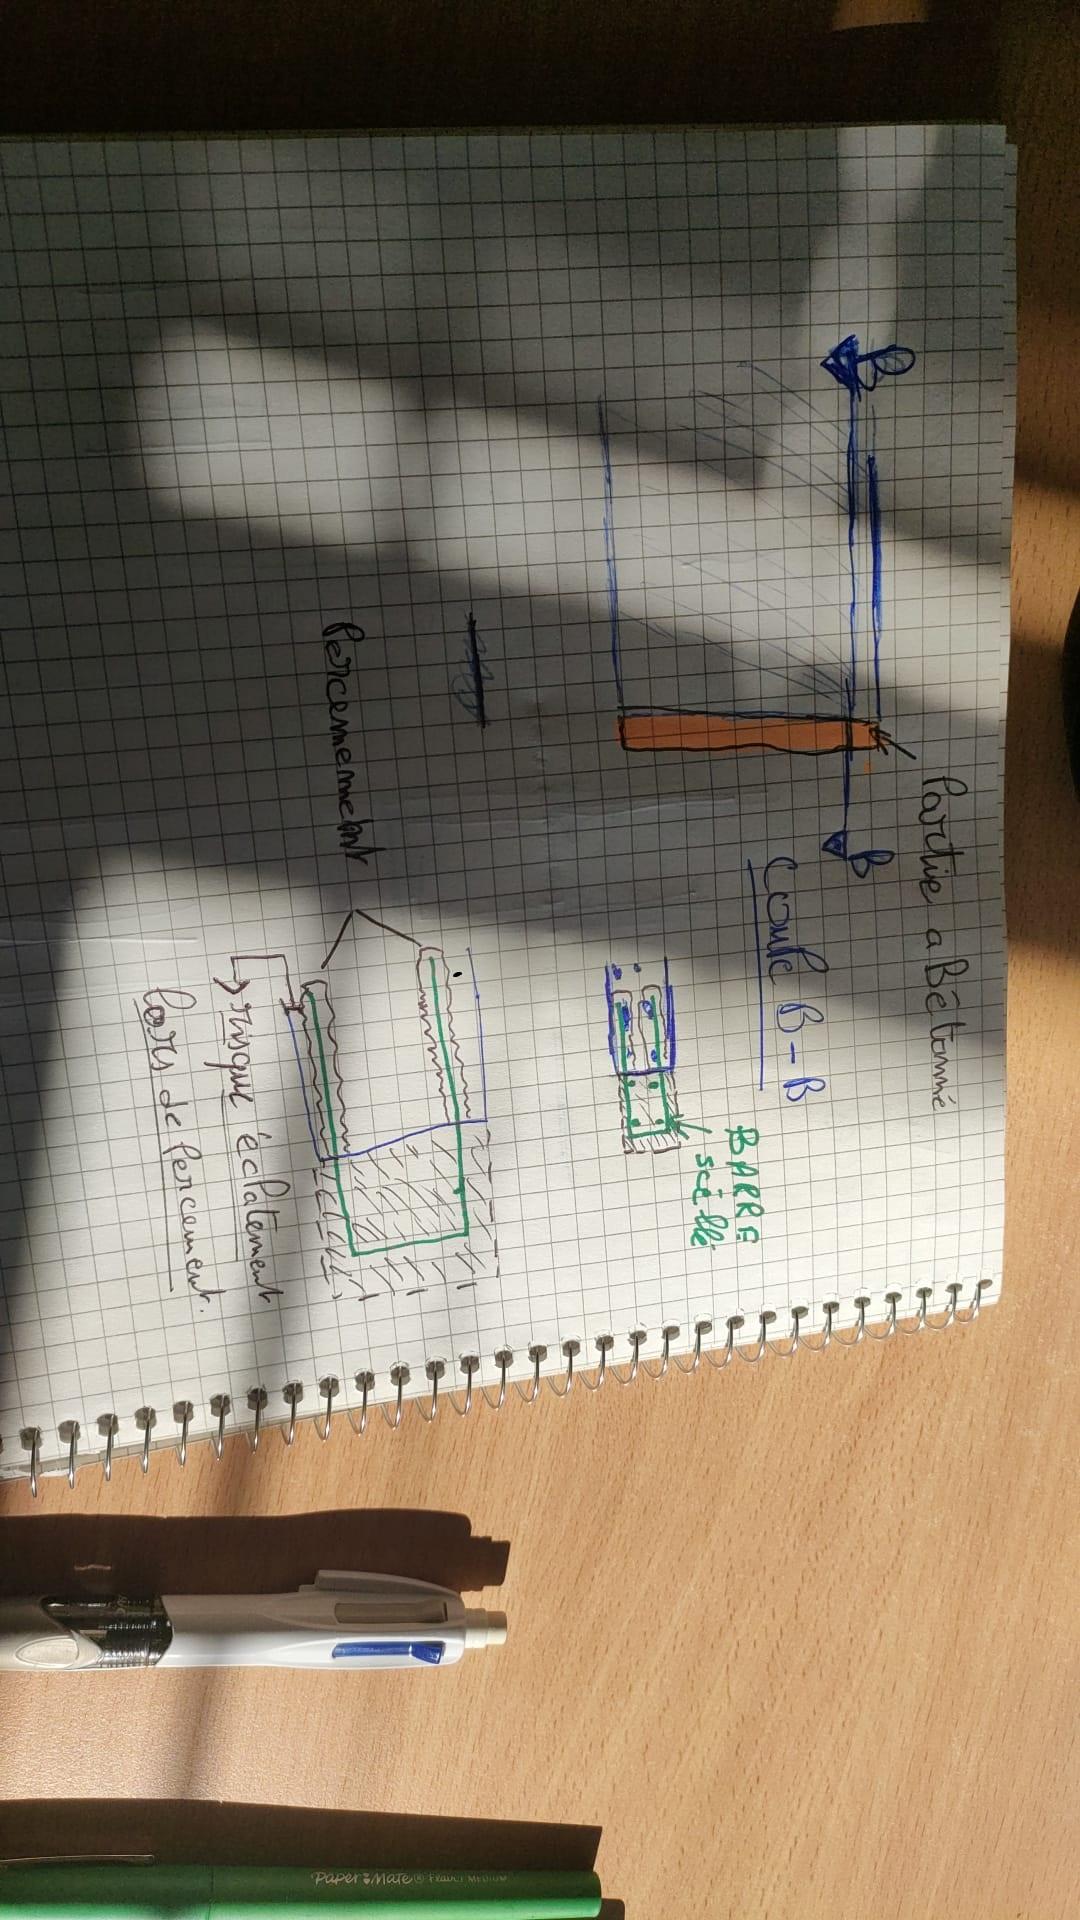 Partie a Bétonné
B
B
Coupe B-B
BARRE
scéllé
Percemement
risque éclatement
lors de percement.
PAPER MATE FLAIR MEDIUM